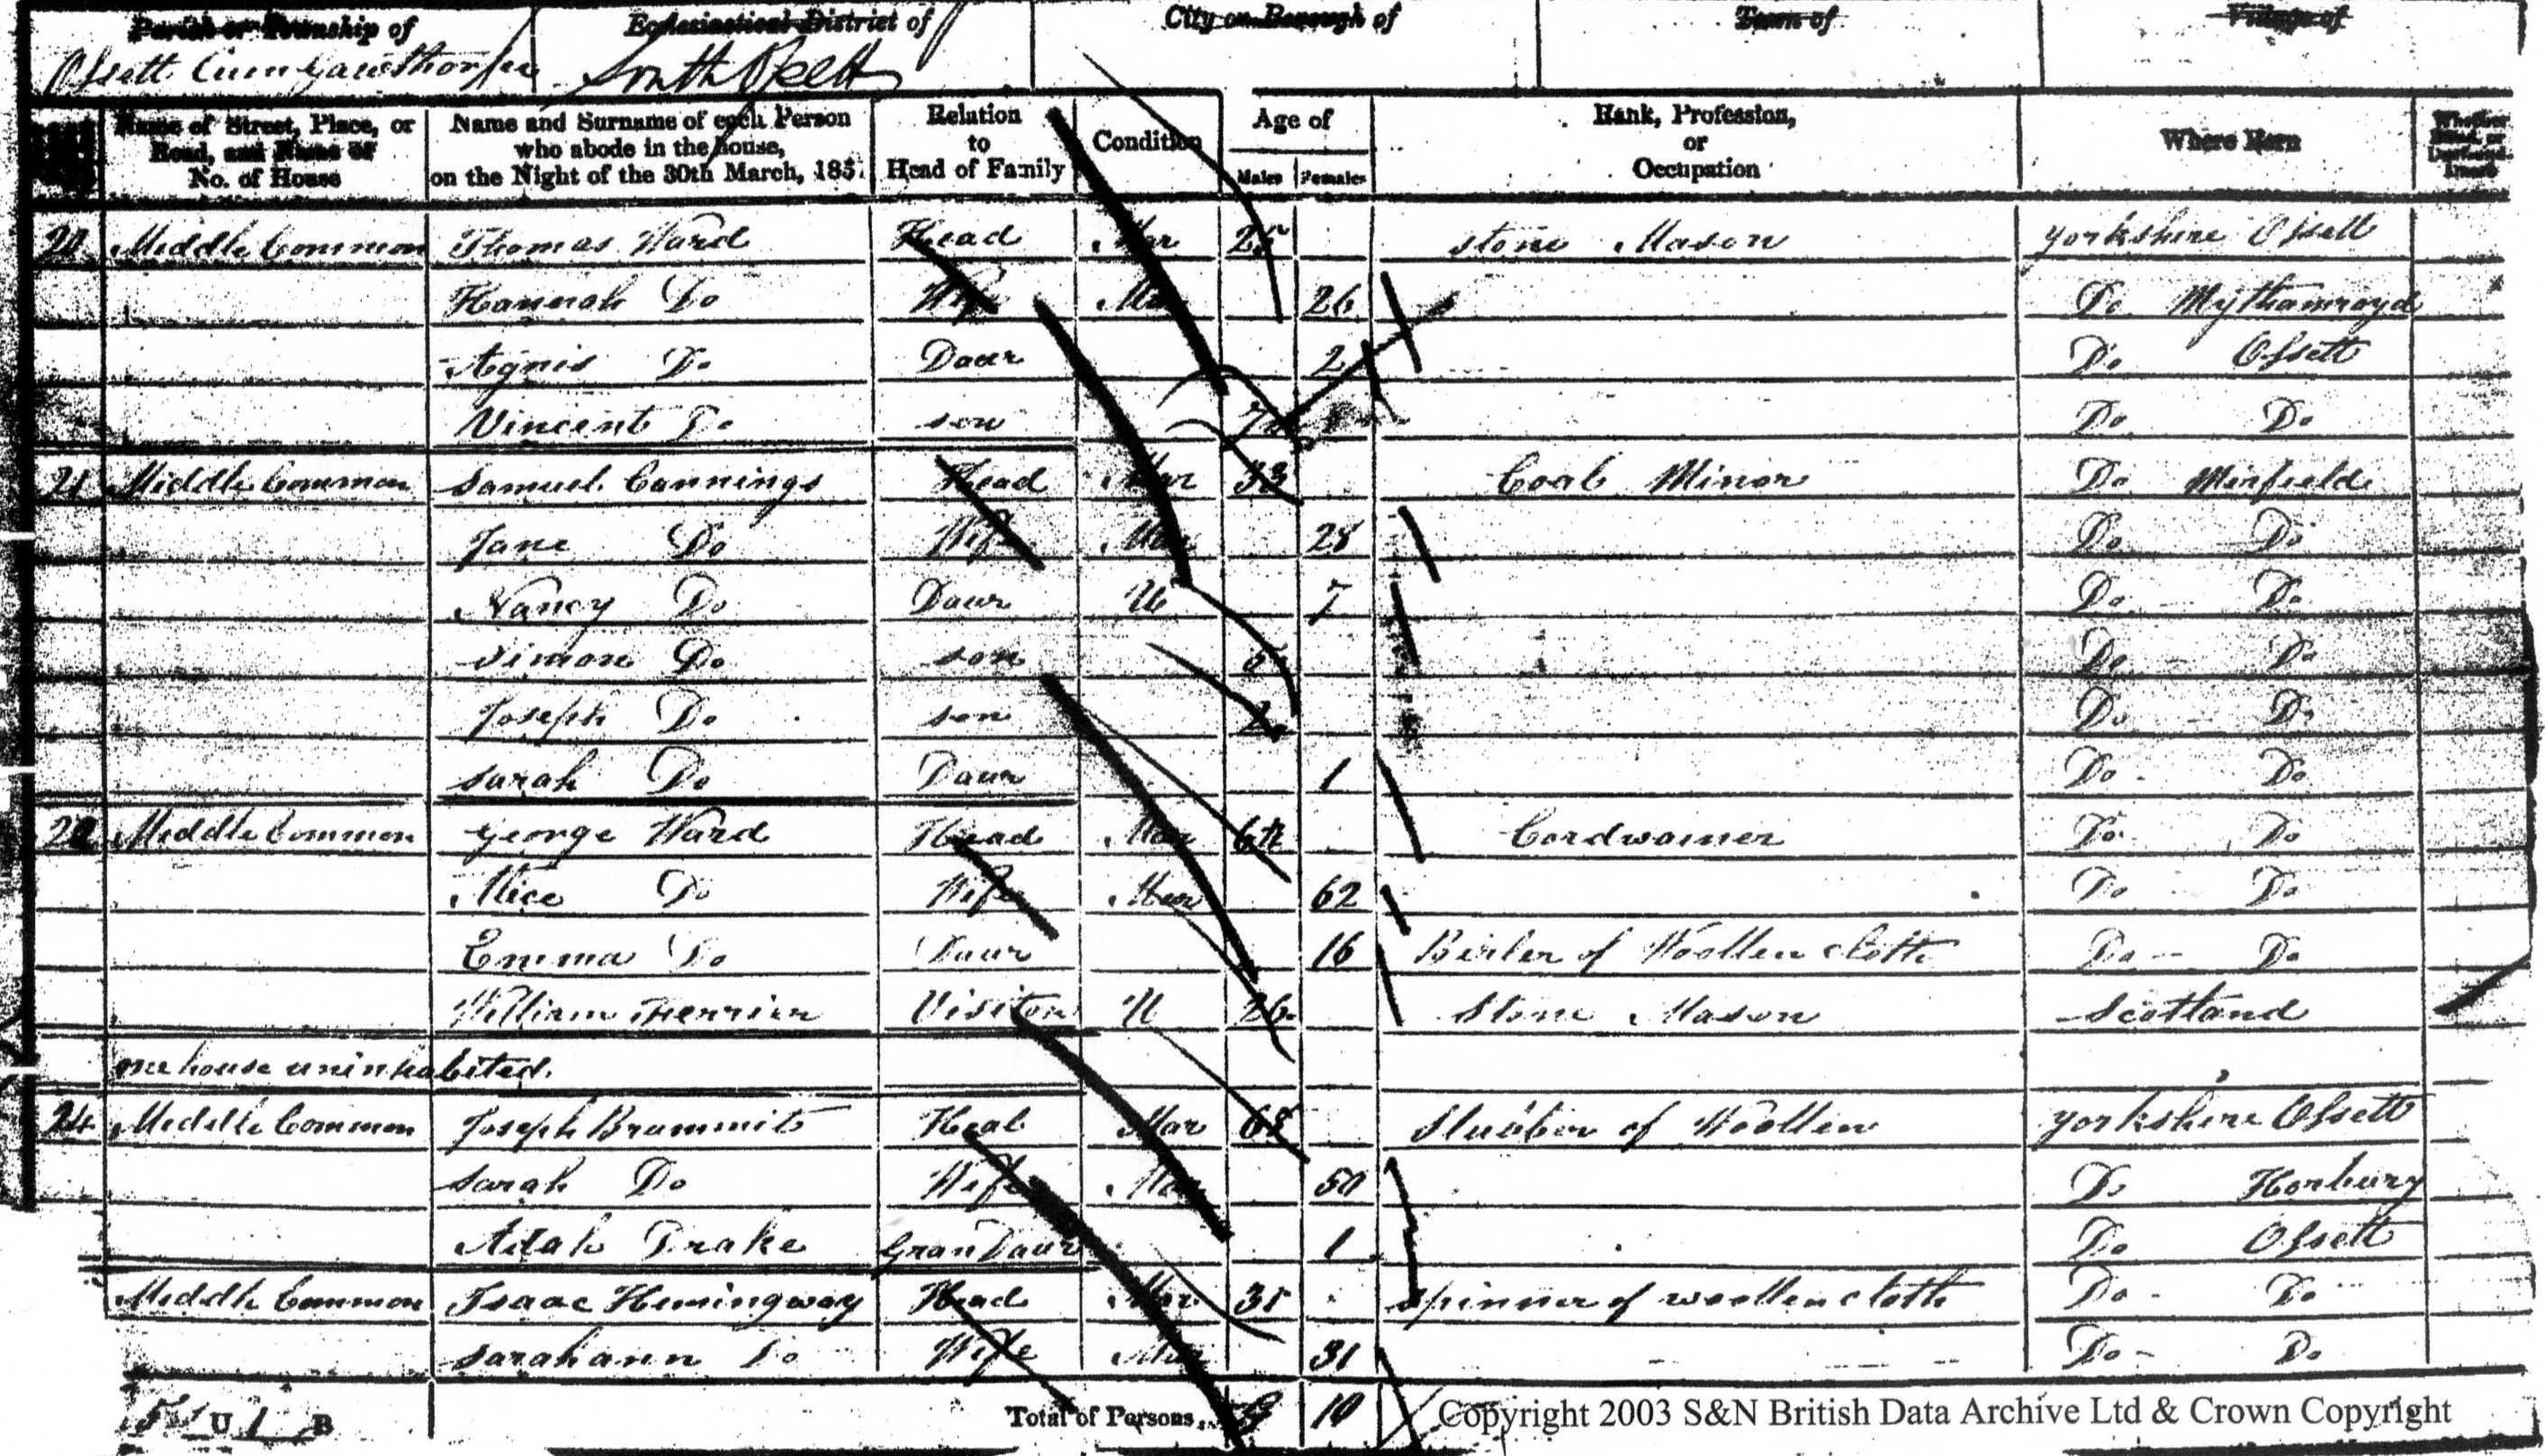 Parish or Township of Ecclesiastical District of City or Borough of Town of Village of
Ossett Cum Gawthorpe South Ossett
Name of Street, Place, or Road, and Name or No. of House
Name and Surname of each Person who abode in the house, on the Night of the 30th March, 185
Relation to Head of Family
Condition
Age of
Males Females
Rank, Profession, or Occupation
Where Born
Whether Blind, or Deaf-and-Dumb
Middle Common Thomas Ward Head Mar 25 stone Mason Yorkshire Ossett
Hannah Do Wife Mar 26 Do Mythamroyd
Agnis Do Daur 2 Do Ossett
Vincent Do son Do Do
21 Middle Common Samuel Cannings Head Mar 33 Coal Minor Do Mirfield
Jane Do Wife Mar 28 Do Do
Nancy Do Daur U 7 Do Do
Simon Do son 5 Do Do
Joseph Do son 2 Do Do
Sarah Do Daur 1 Do Do
22 Middle Common George Ward Head Mar 64 Cordwainer Do Do
Alice Do Wife Mar 62 Do Do
Emma Do Daur 16 Birler of Woollen cloth Do Do
William Ferrier Visitor U 26 Stone Mason Scotland
one house uninhabited.
24 Middle Common Joseph Brummit Head Mar 68 Slubber of Woollen Yorkshire Ossett
Sarah Do Wife Mar 50 Do Horbury
Adah Drake Gran Daur 1 Do Ossett
Middle Common Isaac Hemingway Head Mar 31 Spinner of woollen cloth Do Do
Sarahann Do Wife Mar 31 Do Do
5 U 1 B Total of Persons 9 10
Copyright 2003 S&N British Data Archive Ltd & Crown Copyright